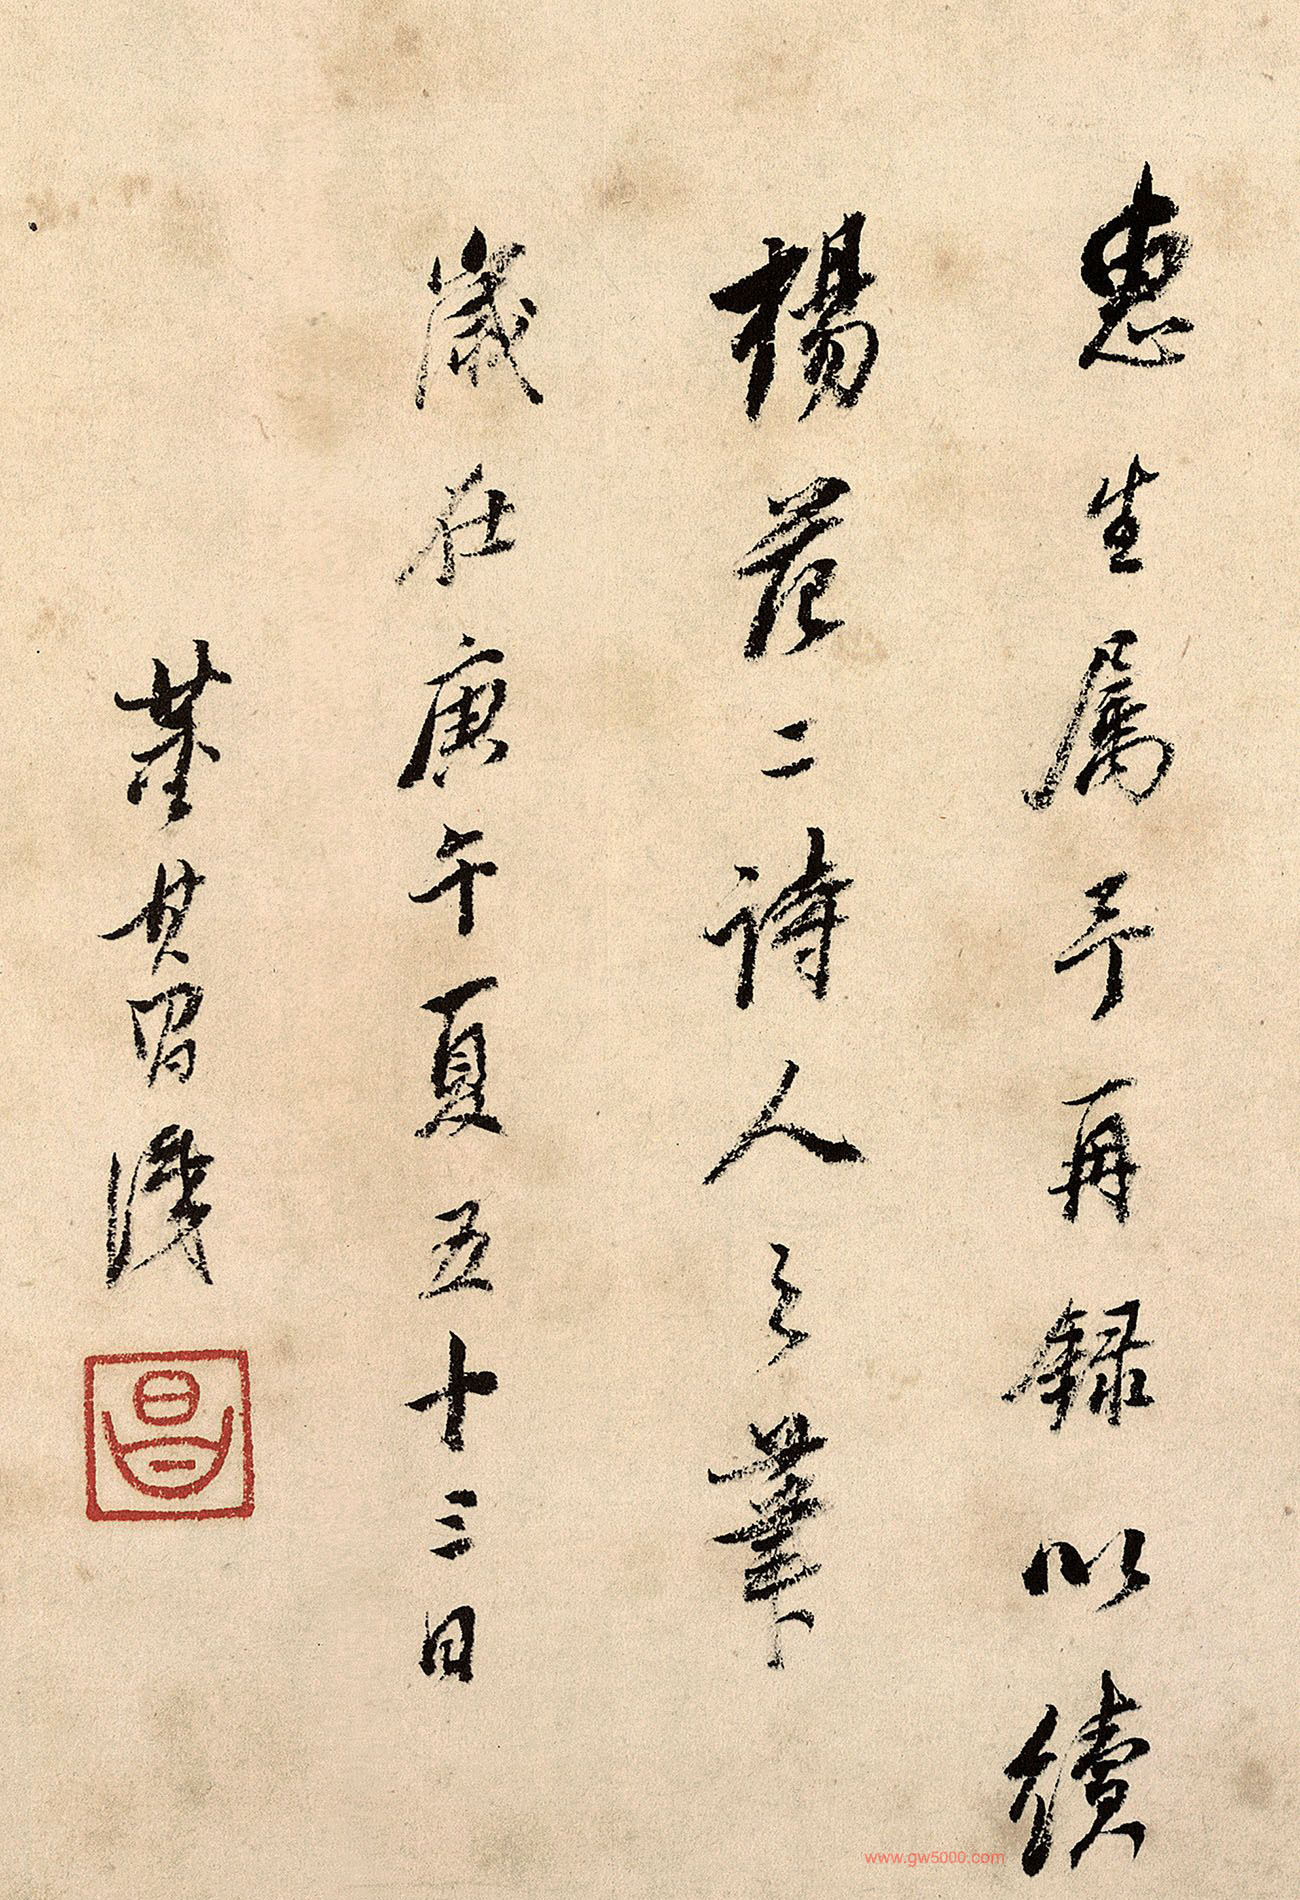 惠生属予再録以續
楊范二詩人之筆
歳在庚午夏五十三日
董其昌識
昌
www.gw5000.com